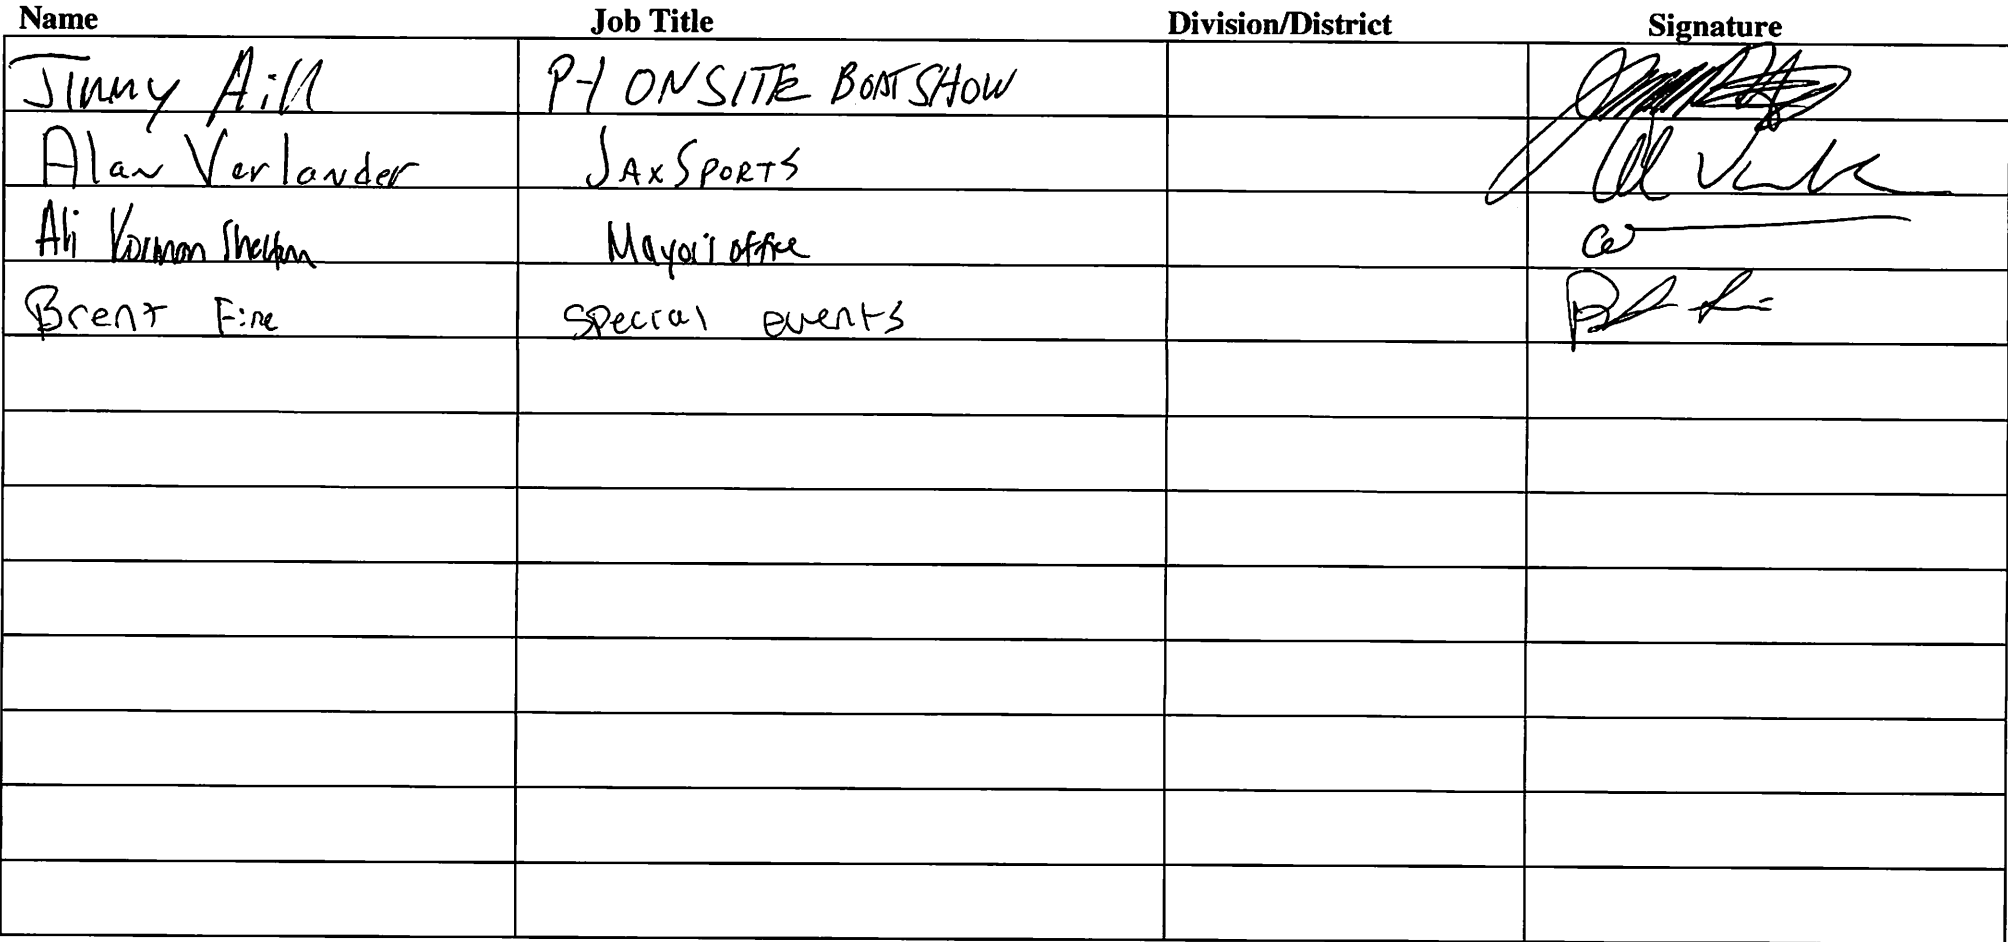 Name Job Title Division/District Signature
Jimmy Hill P-1 ONSITE BOATSHOW
Alan Verlander JAXSPORTS
Ali Korman Shelton Mayor's office
Brent Fine Special events